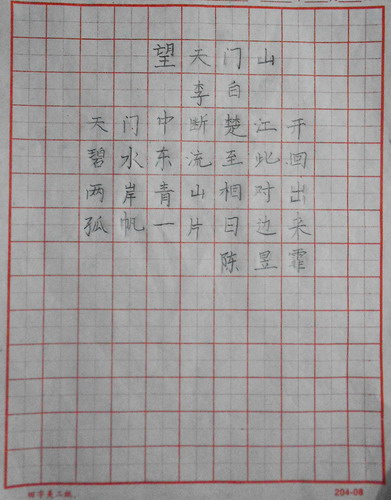 望天门山
李白
天门中断楚江开
碧水东流至此回
两岸青山相对出
孤帆一片日边来
陈昱霏
204-08